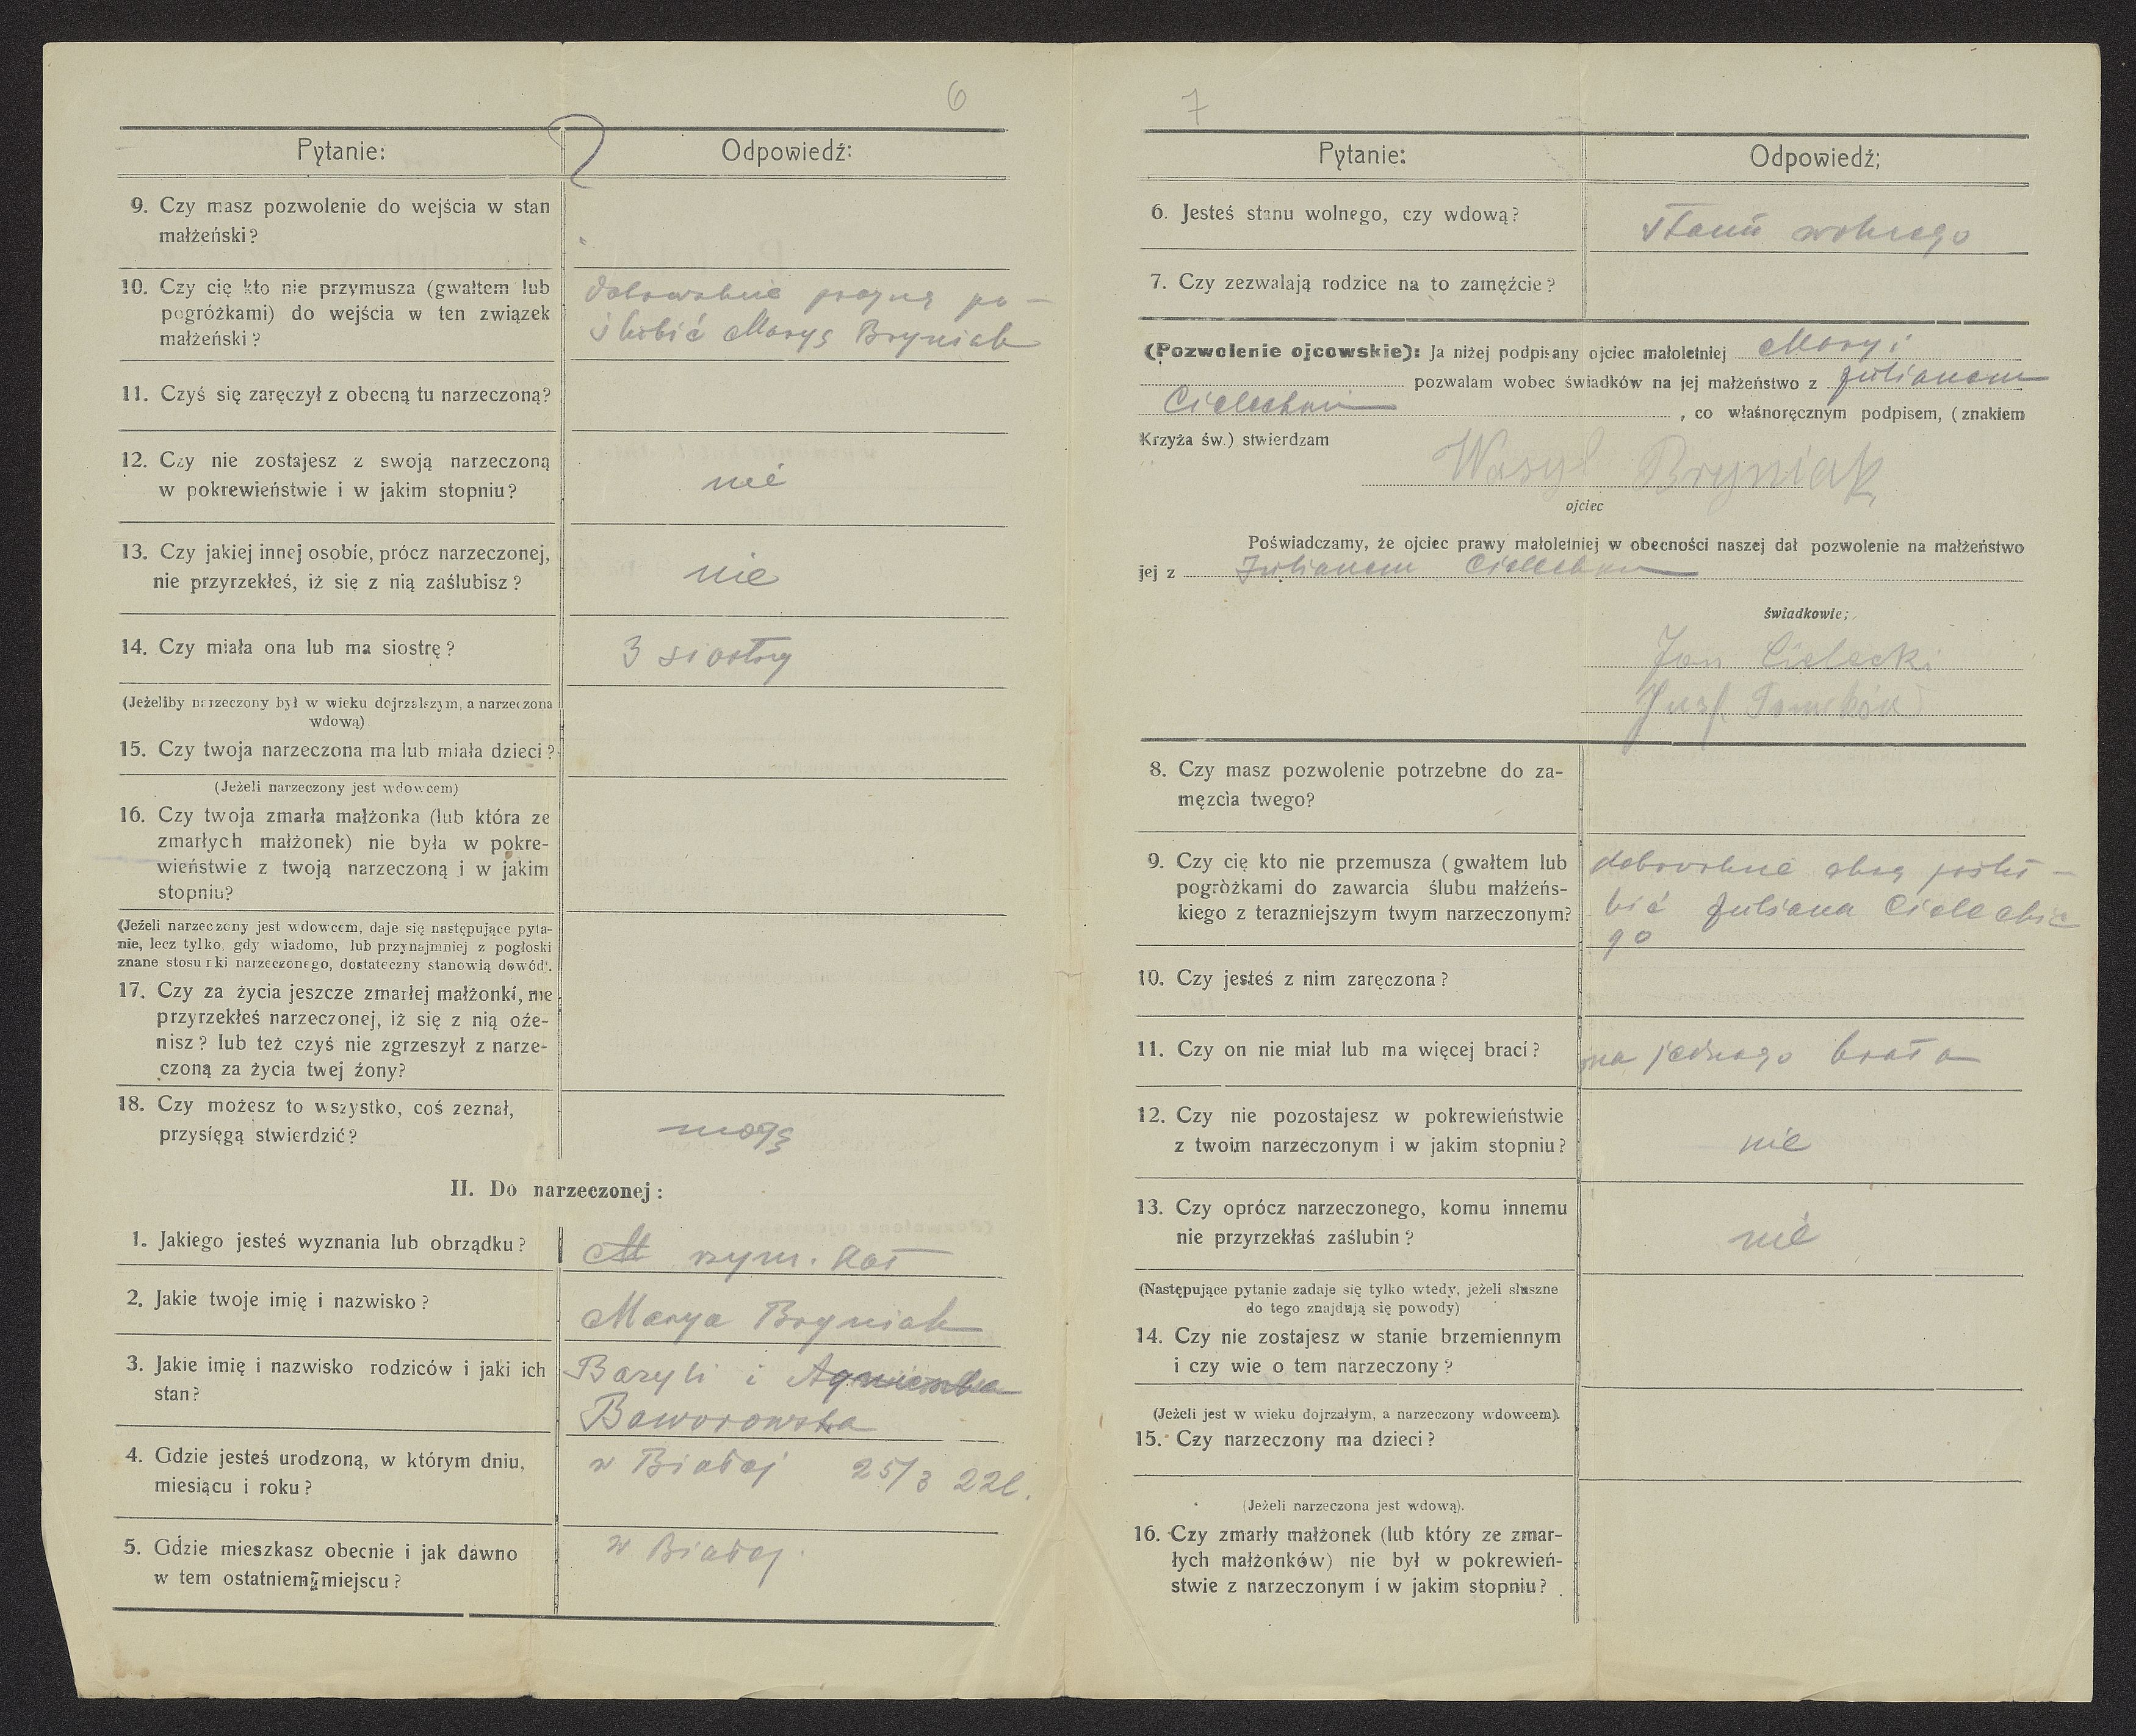 6
Pytanie:
Odpowiedź:
9. Czy masz pozwolenie do wejścia w stan
małżeński?
10. Czy cię kto nie przymusza (gwałtem lub
pogróżkami) do wejścia w ten związek
małżeński?
dobrowolnie pragnę po-
ślubić Maryę Bryniak
11. Czyś się zaręczył z obecną tu narzeczoną?
12. Czy nie zostajesz z swoją narzeczoną
w pokrewieństwie i w jakim stopniu?
nie
13. Czy jakiej innej osobie, prócz narzeczonej,
nie przyrzekłeś, iż się z nią zaślubisz?
nie
14. Czy miała ona lub ma siostrę?
3 siostry
(Jeżeliby narzeczony był w wieku dojrzalszym, a narzeczona
wdową)
15. Czy twoja narzeczona ma lub miała dzieci?
(Jeżeli narzeczony jest wdowcem)
16. Czy twoja zmarła małżonka (lub która ze
zmarłych małżonek) nie była w pokre-
wieństwie z twoją narzeczoną i w jakim
stopniu?
(Jeżeli narzeczony jest wdowcem, daje się następujące pyta-
nie, lecz tylko, gdy wiadomo, lub przynajmniej z pogłoski
znane stosunki narzeczonego, dostateczny stanowią dowód).
17. Czy za życia jeszcze zmarłej małżonki, nie
przyrzekłeś narzeczonej, iż się z nią oże-
nisz? lub też czyś nie zgrzeszył z narze-
czoną za życia twej żony?
18. Czy możesz to wszystko, coś zeznał,
przysięgą stwierdzić?
mogę
II. Do narzeczonej:
1. Jakiego jesteś wyznania lub obrządku?
rzym. kat
2. Jakie twoje imię i nazwisko?
Marya Bryniak
3. Jakie imię i nazwisko rodziców i jaki ich
stan?
Bazyli i Agnieszka
Baworowska
4. Gdzie jesteś urodzoną, w którym dniu,
miesiącu i roku?
w Białej 25/3 22 l.
5. Gdzie mieszkasz obecnie i jak dawno
w tem ostatniem miejscu?
w Białej.
7
Pytanie:
Odpowiedź;
6. Jesteś stanu wolnego, czy wdową?
stanu wolnego
7. Czy zezwalają rodzice na to zamęźcie?
(Pozwolenie ojcowskie): Ja niżej podpisany ojciec małoletniej Maryi
pozwalam wobec świadków na jej małżeństwo z Julianem
Cieleckim , co własnoręcznym podpisem, (znakiem
Krzyża św.) stwierdzam
Wasyl Bryniak
ojciec
Poświadczamy, że ojciec prawy małoletniej w obecności naszej dał pozwolenie na małżeństwo
jej z Julianem Cieleckim
świadkowie;
Jan Cielecki
8. Czy masz pozwolenie potrzebne do za-
męzcia twego?
9. Czy cię kto nie przemusza (gwałtem lub
pogròżkami do zawarcia ślubu małżeńs-
kiego z terazniejszym twym narzeczonym?
dobrowolnie chcę poślu-
bić Juliana Cieleckie
go
10. Czy jesteś z nim zaręczona?
11. Czy on nie miał lub ma więcej braci?
ma jednego brata
12. Czy nie pozostajesz w pokrewieństwie
z twoim narzeczonym i w jakim stopniu?
nie
13. Czy oprócz narzeczonego, komu innemu
nie przyrzekłaś zaślubin?
nie
(Następujące pytanie zadaje się tylko wtedy, jeżeli słuszne
do tego znajdują się powody)
14. Czy nie zostajesz w stanie brzemiennym
i czy wie o tem narzeczony?
(Jeżeli jest w wieku dojrzałym, a narzeczony wdowcem).
15. Czy narzeczony ma dzieci?
(Jeżeli narzeczona jest wdową).
16. Czy zmarły małżonek (lub który ze zmar-
łych małżonków) nie był w pokrewień-
stwie z narzeczonym i w jakim stopniu?